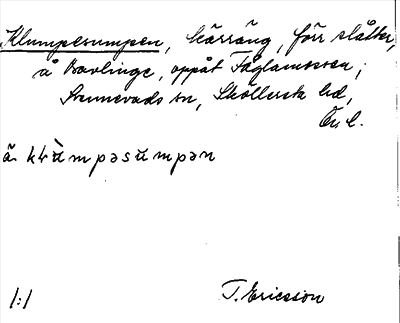 Klumpesumpen, kärräng, förr slåtter,
å Bavlinge, oppåt Fåglamossen;
Sunnevads sn, Sköllersta hd,
Ör. l.
ä. klùmpəsumpən
1:1
T. Ericsson